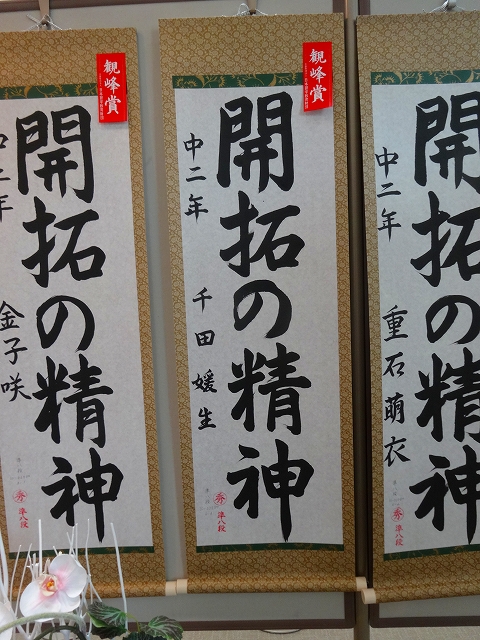 観峰賞
開拓の精神
中二年
金子咲
秀
準八段
観峰賞
開拓の精神
中二年 千田媛生
秀
準八段
開拓の精神
中二年 重石萌衣
秀
準八段